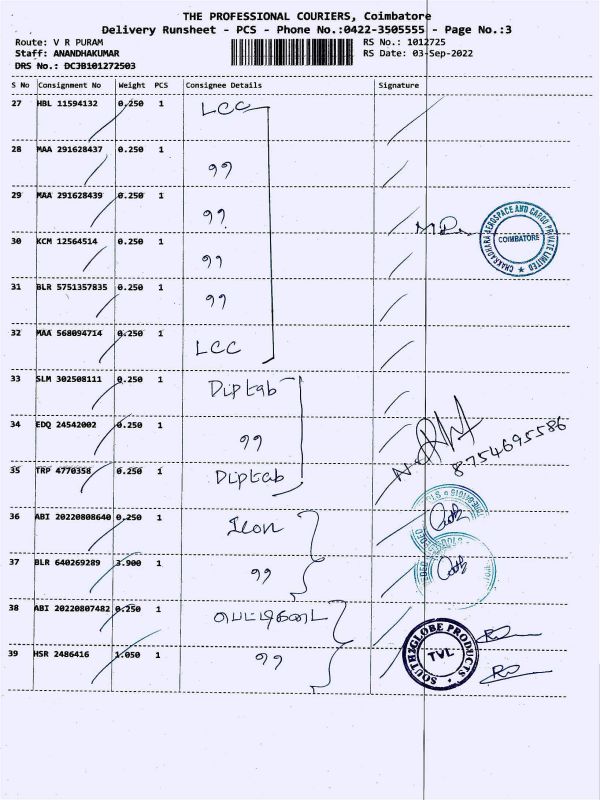 THE PROFESSIONAL COURIERS, Coimbatore
Delivery Runsheet - PCS - Phone No.:0422-3505555 - Page No.:3
Route: V R PURAM RS No.: 1012725
Staff: ANANDHAKUMAR RS Date: 03-Sep-2022
DRS No.: DCJB101272503
S No Consignment No Weight PCS Consignee Details Signature
27 HBL 11594132 0.250 1 LCC
28 MAA 291628437 0.250 1 99
29 MAA 291628439 0.250 1 99
30 KCM 12564514 0.250 1 99
CHAKRADHARA AEROSPACE AND CARGO PRIVATE LIMITED
COIMBATORE
31 BLR 5751357835 0.250 1 99
32 MAA 568094714 0.250 1 LCC
33 SLM 302508111 0.250 1 Diptab
34 EDQ 24542002 0.250 1 99
8754695586
35 TRP 4770358 0.250 1 Diptab
36 ABI 20220808640 0.250 1 Icon
37 BLR 640269289 3.900 1 99
38 ABI 20220807482 0.250 1 பெட்டிகடை
39 HSR 2486416 1.050 1 99
SOUTH2GLOBE PRODUCTS
TVL